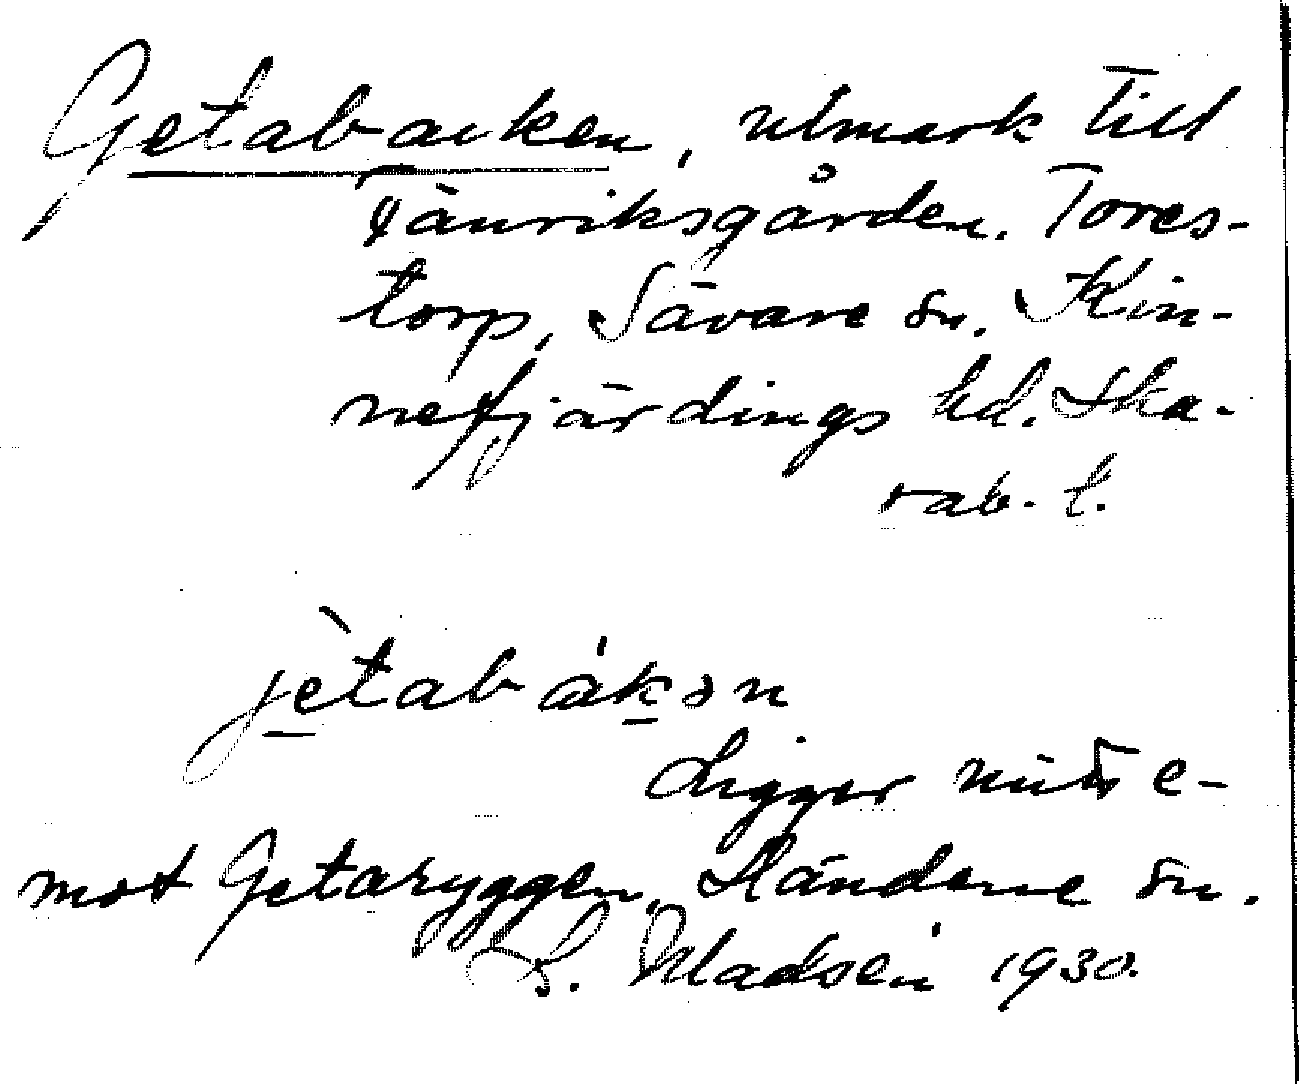 Getabacken, utmark till
Fänriksgården. Tores-
torp, Sävare sn. Kin-
nefjärdings hd. Ska-
rab. l.
jètabákən
Ligger mitt e-
mot Getaryggen, Händene sn.
S. Madsén 1930.